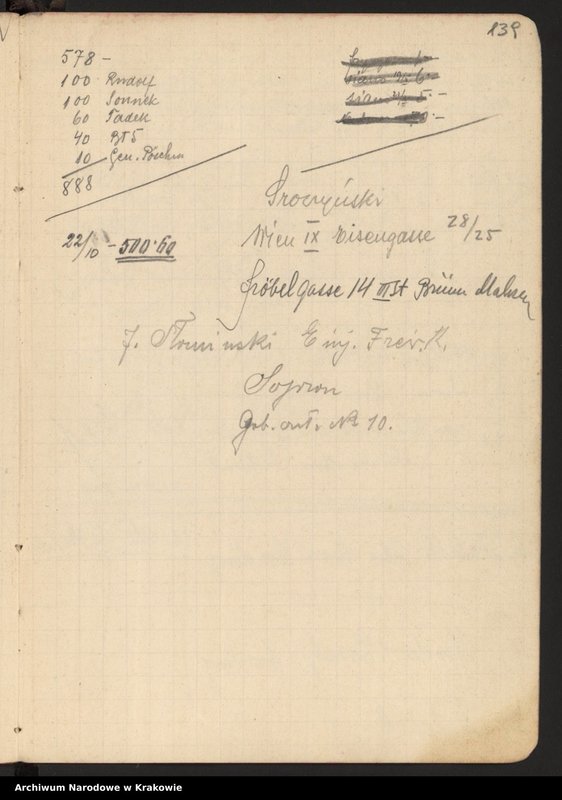 139
578 -
100 Rudolf
100 Sonnek
60 Tadek
40
10 Gen.
888
22/10 - 500·60
Sroczyński
Wien IX 28/25
Fröbelgasse 14 III St Brünn
J. Słomiński Einj. Freiw. K.
Sopron
Geb. art. № 10.
Archiwum Narodowe w Krakowie